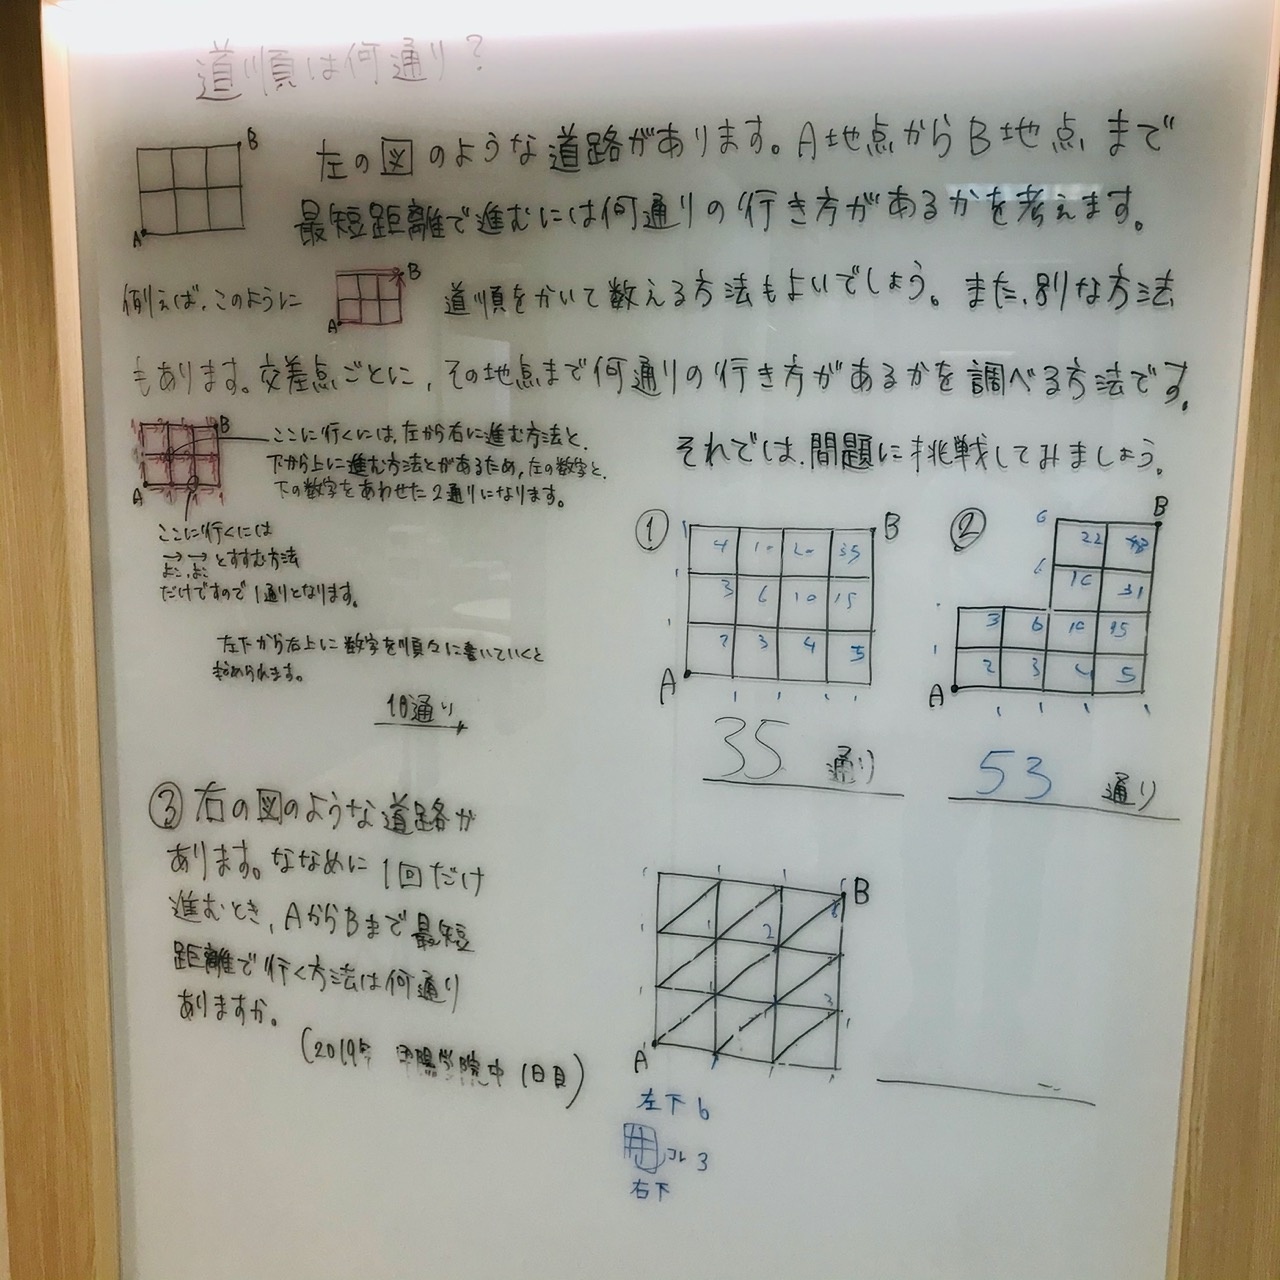 道順は何通り?
B
左の図のような道路があります。A地点からB地点まで
最短距離で進むには何通りの行き方があるかを考えます。
A
例えば、このように
B
A
道順をかいて数える方法もよいでしょう。また、別な方法
もあります。交差点ごとに、その地点まで何通りの行き方があるかを調べる方法です。
B
A
ここに行くには、左から右に進む方法と、
下から上に進む方法とがあるため、左の数字と、
下の数字をあわせた2通りになります。
ここに行くには
→ → とすすむ方法
よこ、よこ
だけですので1通りとなります。
左下から右上に数字を順々に書いていくと
求められます。
10通り
それでは、問題に挑戦してみましょう。
①
B
1
4 10 20 35
1
3 6 10 15
1
2 3 4 5
A
1 1 1 1
35 通り
②
B
6
22
6
16 31
1
3 6 10 15
1
2 3 4 5
A
1 1 1 1
53 通り
③右の図のような道路が
あります。ななめに1回だけ
進むとき、AからBまで最短
距離で行く方法は何通り
ありますか。
(2019年 甲陽学院中 1日目)
B
1
2
3
A
左下 6
コレ 3
右下